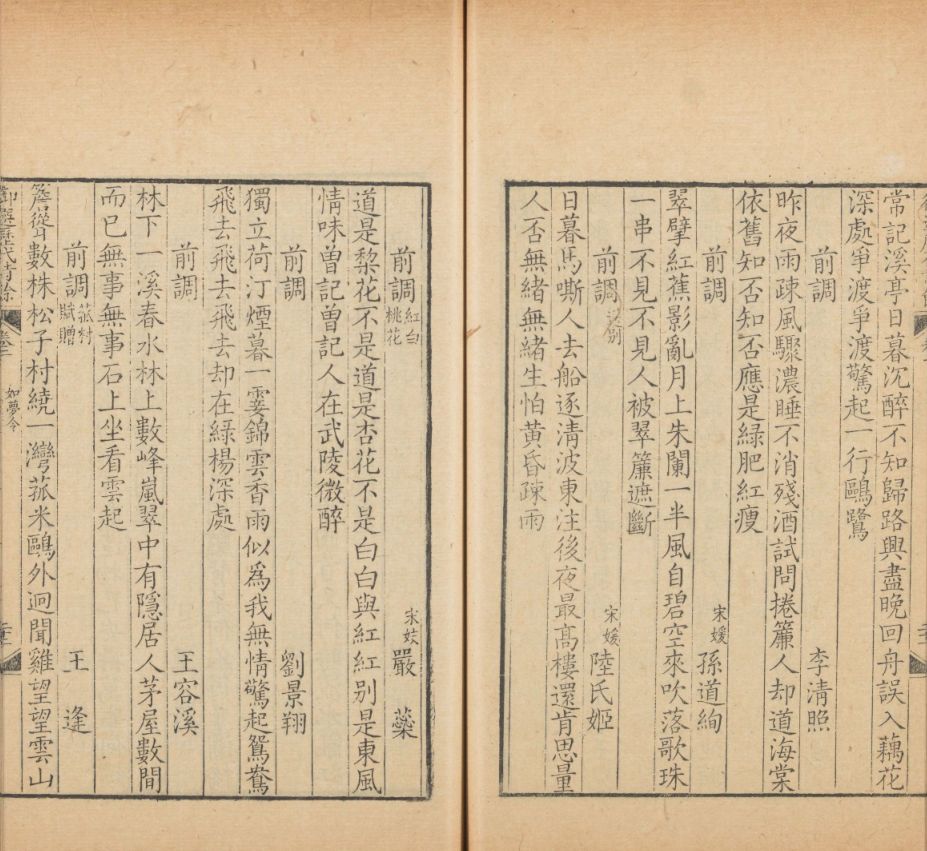 常記溪亭日暮沉醉不知歸路興盡晚回舟誤入藕花
深處爭渡爭渡驚起一行鷗鷺
前調 李清照
昨夜雨疎風驟濃睡不消殘酒試問捲簾人却道海棠
依舊知否知否應是綠肥紅瘦
前調 宋媛 孫道絢
翠擘紅蕉影亂月上朱闌一半風自碧空來吹落歌珠
一串不見不見人被翠簾遮斷
前調 送別 宋媛 陸氏姬
日暮馬嘶人去船逐清波東注後夜最高樓還肯思量
人否無緒無緒生怕黄昏疎雨
前調 紅白桃花 宋妓 嚴蘂
道是棃花不是道是杏花不是白白與紅紅别是東風
情味曽記曽記人在武陵微醉
前調 劉景翔
獨立荷汀煙暮一霎錦雲香雨似爲我無情驚起鴛鴦
飛去飛去飛去却在綠楊深處
前調 王容溪
林下一溪春水林上數峰嵐翠中有隱居人茅屋數間
而已無事無事石上坐看雲起
前調 菰村賦贈 王逢
簷從聳數株松子村繞一灣菰米鷗外迥聞雞望望雲山
卷二 如夢令